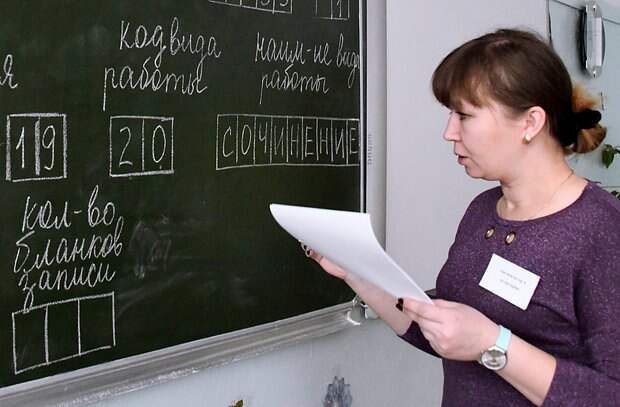 код вида
работы
наим-не вида
работы
19
20
СОЧИНЕНИЕ
кол-во
бланков
записи